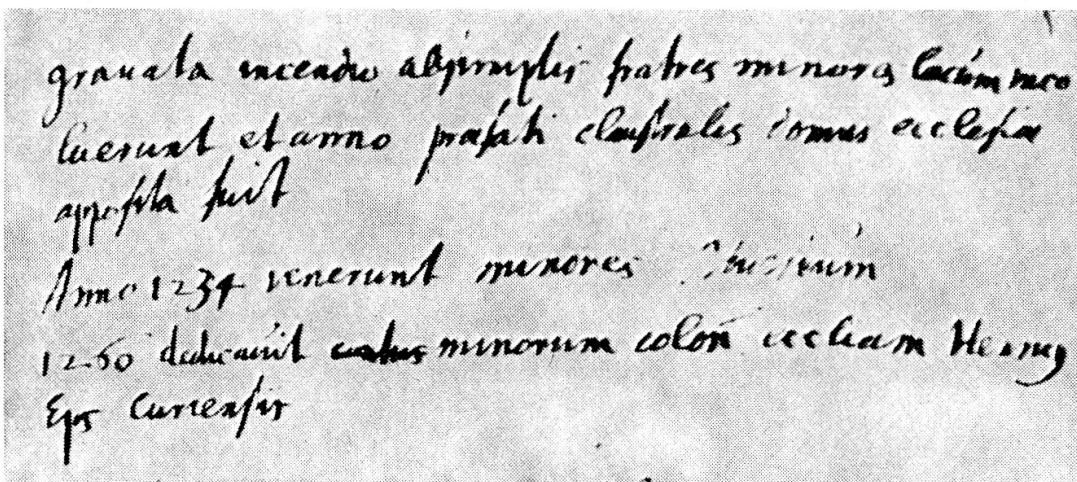 grauata incendio abstinuplis fratres minores locum inco
luerunt et anno praefati claustralis domus ecclesiae
apposita fuit
Anno 1234 venerunt minores
1260 dedicauit minorum colon eccliam Henricg
Eps Curiensis